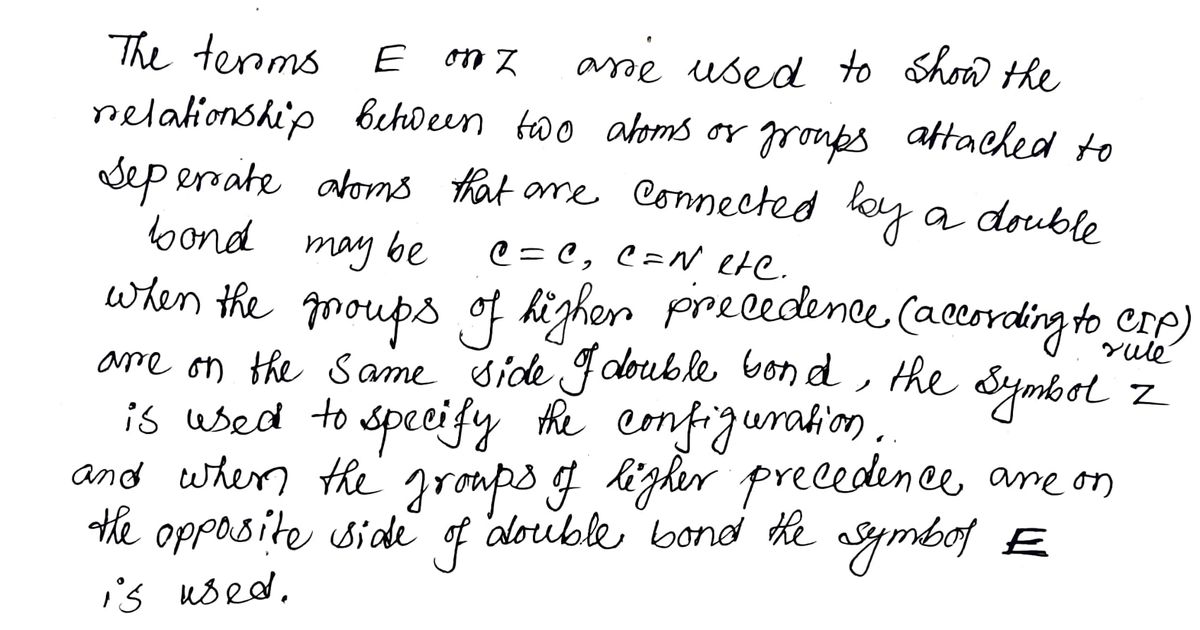 The terms E or Z are used to show the
relationship between two atoms or groups attached to
seperate atoms that are connected by a double
bond may be C=C, C=N etc.
when the groups of higher precedence (according to CIP)
rule
are on the same side of double bond, the symbol Z
is used to specify the configuration.
and when the groups of higher precedence are on
the opposite side of double bond the symbol E
is used.